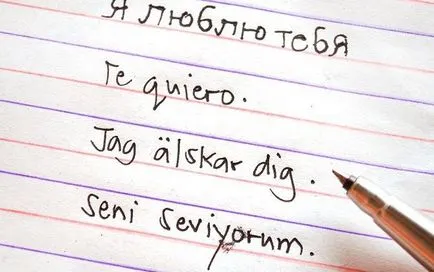 Я люблю тебя
Te quiero.
Jag älskar dig.
Seni seviyorum.